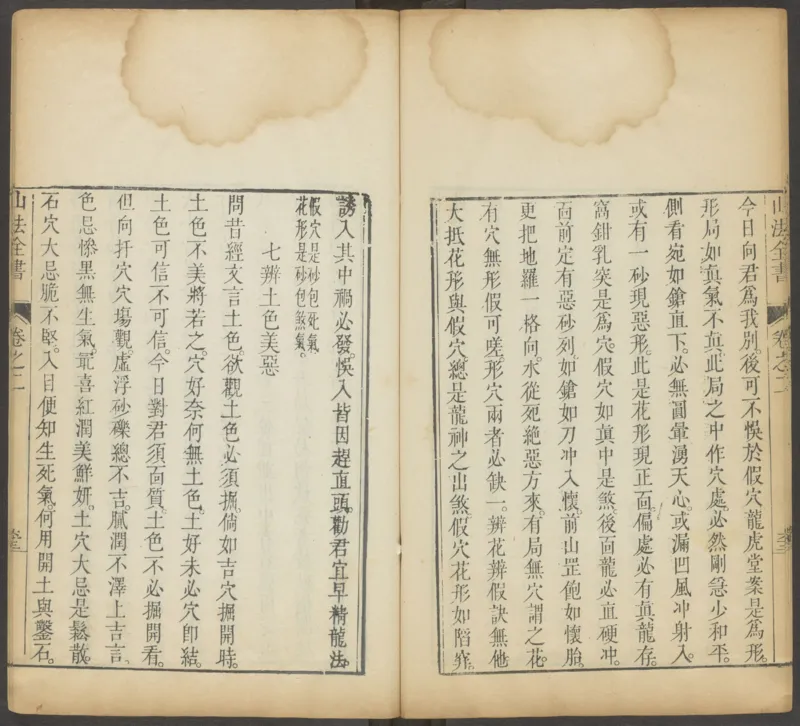 山法全書
卷之二
今日向君為我別。後可不悞於假穴。龍虎堂案是為形。
形局如真氣不真。此局之中作穴處。必然剛急少和平。
側看宛如鎗直下。必無圓暈湧天心。或漏凹風冲射入。
或有一砂現惡形。此是花形現正面。偏處必有真龍存。
窩鉗乳突是為穴。假穴如真中是煞。後面龍必直硬冲。
面前定有惡砂列。如鎗如刀冲入懷。前山罡飽如懷胎。
更把地羅一格向。水從死絕惡方來。有局無穴謂之花。
有穴無形假可嗟。形穴兩者必缺一。辨花辨假訣無他
大抵花形與假穴。總是龍神之出煞。假穴花形如陷穽。
誘入其中禍必發。悞入皆因趕直頭。勸君宜早精龍法。
假穴是砂包死氣。
花形是砂包煞氣。
七辨土色美惡
問昔經文言土色。欲觀土色必須掘。倘如吉穴掘開時。
土色不美將若之。穴好奈何無土色。土好未必穴即結。
土色可信不可信。今日對君須面質。土色不必掘開看。
但向扦穴穴塲觀。虛浮砂礫總不吉。膩潤不澤上吉言。
色忌慘黑無生氣。最喜紅潤美鮮妍。土穴大忌是鬆散。
石穴大忌脆不堅。入目便知生死氣。何用開土與鑿石。
山法全書
卷之二